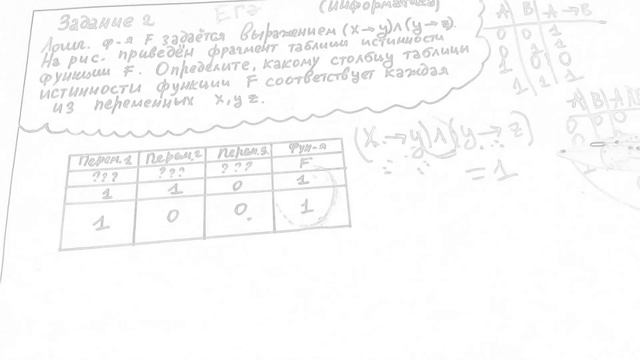 Задание 2
ЕГЭ
(информатика)
Логич. ф-я F задаётся выражением (x→y)∧(y→z).
На рис. приведён фрагмент таблицы истинности
функции F. Определите, какому столбцу таблицы
истинности функции F соответствует каждая
из переменных x, y z.
A B A→B
0 0 1
0 1 1
1 0 0
1 1 1
A B
0 0 0
Перем.1 Перем.2 Перем.3 Фун-я
??? ??? ??? F
1 1 0 1
1 0 0. 1
(x→y)∧(y→z)
=1